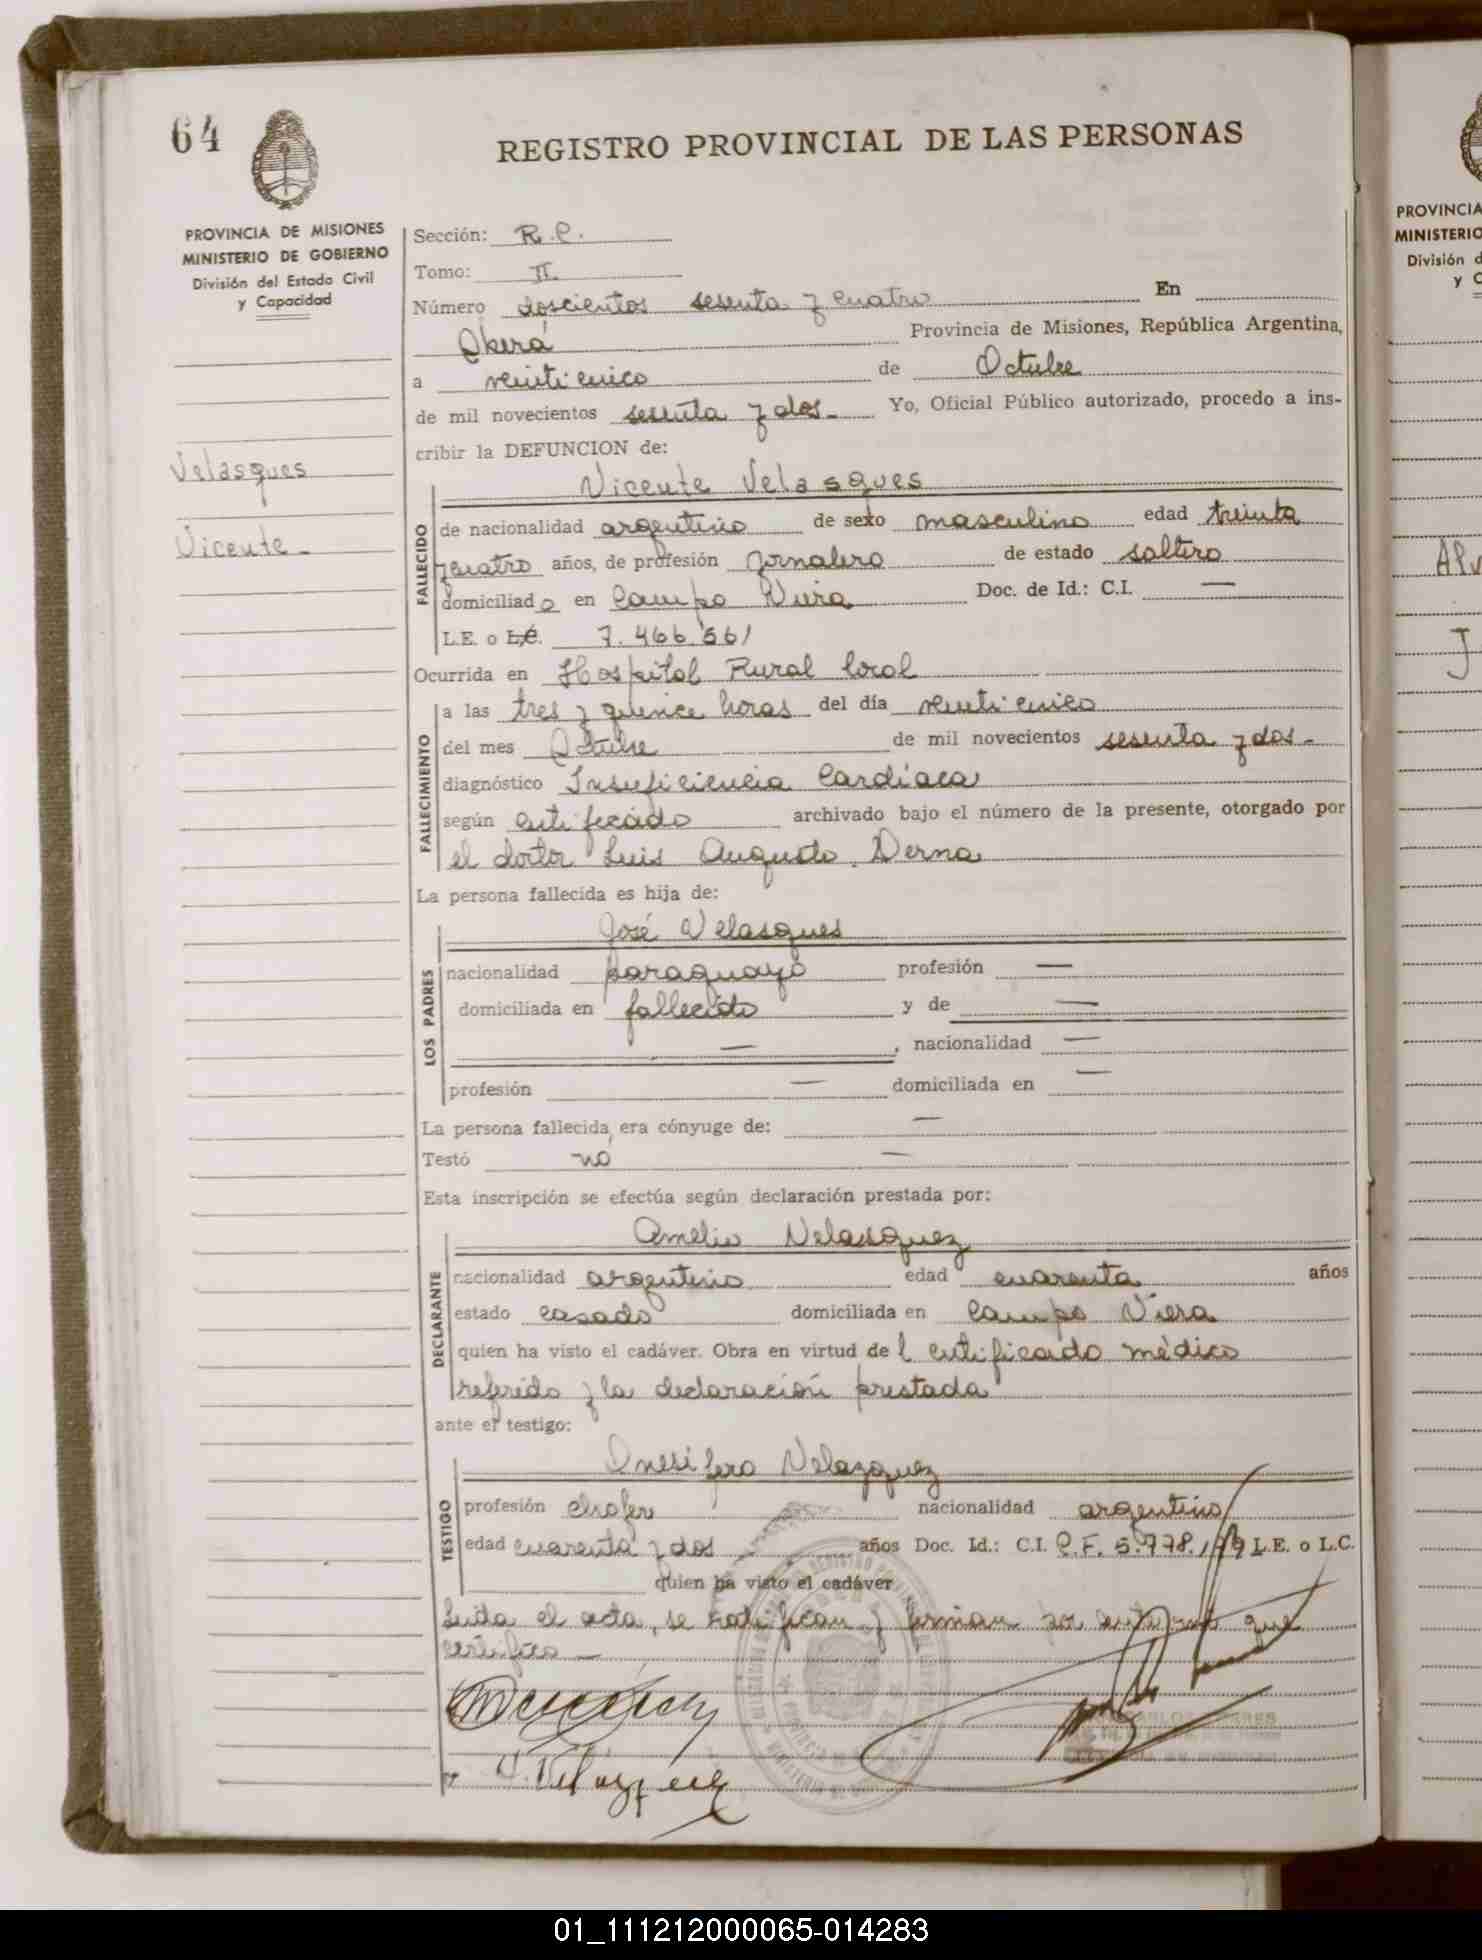 64
REGISTRO PROVINCIAL DE LAS PERSONAS
PROVINCIA DE MISIONES
MINISTERIO DE GOBIERNO
División del Estado Civil
y Capacidad
Velasques
Vicente -
Sección: R.C.
Tomo: II
Número doscientos sesenta y cuatro En
Oberá Provincia de Misiones, República Argentina,
a veinticinco de Octubre
de mil novecientos sesenta y dos - Yo, Oficial Público autorizado, procedo a ins-
cribir la DEFUNCION de:
Vicente Velasques
FALLECIDO
de nacionalidad argentino de sexo masculino edad treinta
y cuatro años, de profesión jornalero de estado soltero
domiciliado en Campo Viera Doc. de Id.: C.I. —
L.E. o L.C. 7.466.561
Ocurrida en Hospital Rural local
FALLECIMIENTO
a las tres y quince horas del día veinticinco
del mes Octubre de mil novecientos sesenta y dos -
diagnóstico Insuficiencia Cardíaca
según certificado archivado bajo el número de la presente, otorgado por
el doctor Luis Augusto Derna
La persona fallecida es hija de:
LOS PADRES
José Velasques
nacionalidad paraguayo profesión —
domiciliada en fallecido y de —
— , nacionalidad —
profesión — domiciliada en —
La persona fallecida era cónyuge de: —
Testó no —
Esta inscripción se efectúa según declaración prestada por:
DECLARANTE
Amelio Velasquez
nacionalidad argentino edad cuarenta años
estado casado domiciliada en Campo Viera
quien ha visto el cadáver. Obra en virtud del certificado médico
referido y la declaración prestada
ante el testigo:
TESTIGO
Onesifero Velazquez
profesión chofer nacionalidad argentino
edad cuarenta y dos años Doc. Id.: C.I. C.F. 5.778. L.E. o L.C.
quien ha visto el cadáver
Leida el acta, se ratifican y firman por ante mí que
certifico -
PROVINCIA
MINISTERIO
División d
y C
01_111212000065-014283